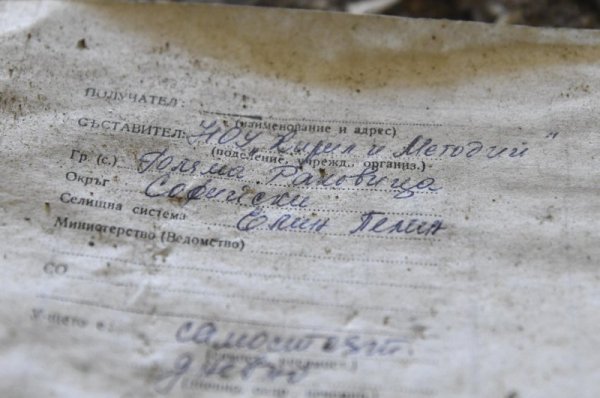 ПОЛУЧАТЕЛ:
(наименование и адрес)
СЪСТАВИТЕЛ: НОУ "Кирил и Методий"
(поделение, учрежд., организ.)
Гр (с.) Голяма Раковица
Окръг Софийски
Селищна система Елин Пелин
Министерство (Ведомство)
СО
самостоят.
дневно